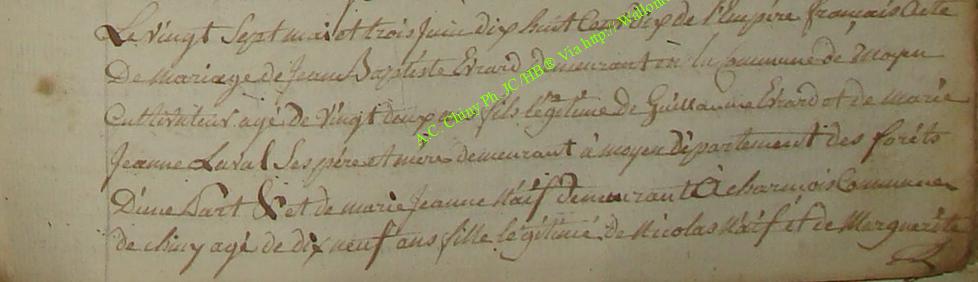 Le vingt Sept mai et trois juin dix huit Cent dix de l'Empire français Acte
De mariage de Jean Baptiste Evrard demeurant in la Commune de moyen
Cultivateur agé De vingt deux ans fils légitime de Guillaume Evrard et de marie
Jeanne Laval Ses père et mere demeurant à moyen Département des forêts
D'une Part & et de marie Jeanne Naif demeurant à charmois Commune
de chiny agé de dix neuf ans fille légitime de Nicolas Naif et de Marguerite
A.C. Chiny Ph. JC/HB® Via http://Wallonie